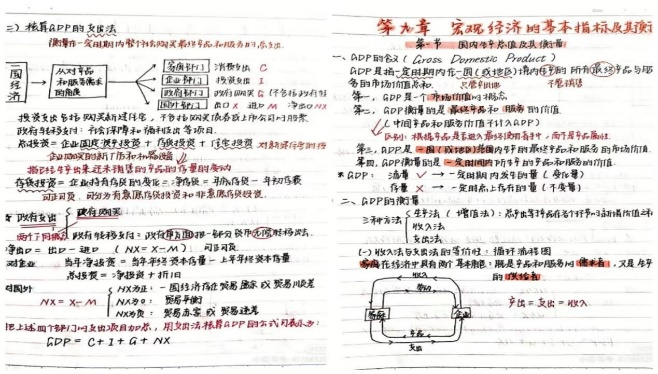 二)核算GDP的支出法
衡量在一定时期内整个社会购买最终产品和服务的总支出.
一国经济
从对产品和服务需求的角度
家庭部门 消费支出 C
企业部门 投资支出 I
政府部门 政府购买 G
国外部门 出口X 进口M 净出口NX
投资支出包括购买新建住宅,不包括购买债券或上市公司的股票.
政府转移支付:社会保障和福利性支出等项目.
总投资=企业固定资产投资+存货投资+住宅投资
企业购买的新厂房和机器设备
指已经生产出来还未销售的产品的存量的变动
存货投资=企业持有存货的变化=净存货=年底存货-年初存货
可正可负.可分为有意愿存货投资和非意愿存货投资.
政府支出 政府购买
政府转移支付:
净出口=出口-进口 (NX=X-M) 可正可负.
对企业 当年净投资=当年年终资本存量-上年年终资本存量
总投资=净投资+折旧
对国外 NX为正:一国经济存在贸易盈余或贸易顺差
NX=X-M NX为0:贸易平衡
NX为负:贸易赤字或贸易逆差
把上述四个部门的支出项目加总,用支出法核算GDP的公式可表示为:
GDP=C+I+G+NX
第九章 宏观经济的基本指标及其衡
第一节 国内生产总值及其衡量
一、GDP的含义(Gross Domestic Product)
GDP是指一定时期内在一国(或地区)境内生产的所有最终产品与服
务的市场价值总和.
第一,GDP是一个市场价值的概念
第二,GDP衡量的是最终产品和服务的价值.
(中间产品和服务价值不计入GDP)
区别:根据产品是否进入最终使用者手中,而非产品属性
第三,GDP是一国(或地区)范围内生产的最终产品和服务的市场价值.
第四,GDP衡量的是一定时间内所生产的产品和服务的价值
* GDP:流量 ✓ → 一定时期内发生的量(变化量)
存量 × → 一定时点上存在的量(不变量)
二、GDP的衡量
三种方法 生产法(增值法):
收入法
支出法
(一)收入法与支出法的等价性:循环流程图
家庭在经济中具有两个基本角色:既是产品和服务的需求者,又是生产
的供给者
收入
劳动
家庭
企业
产品
支出
产出=支出=收入